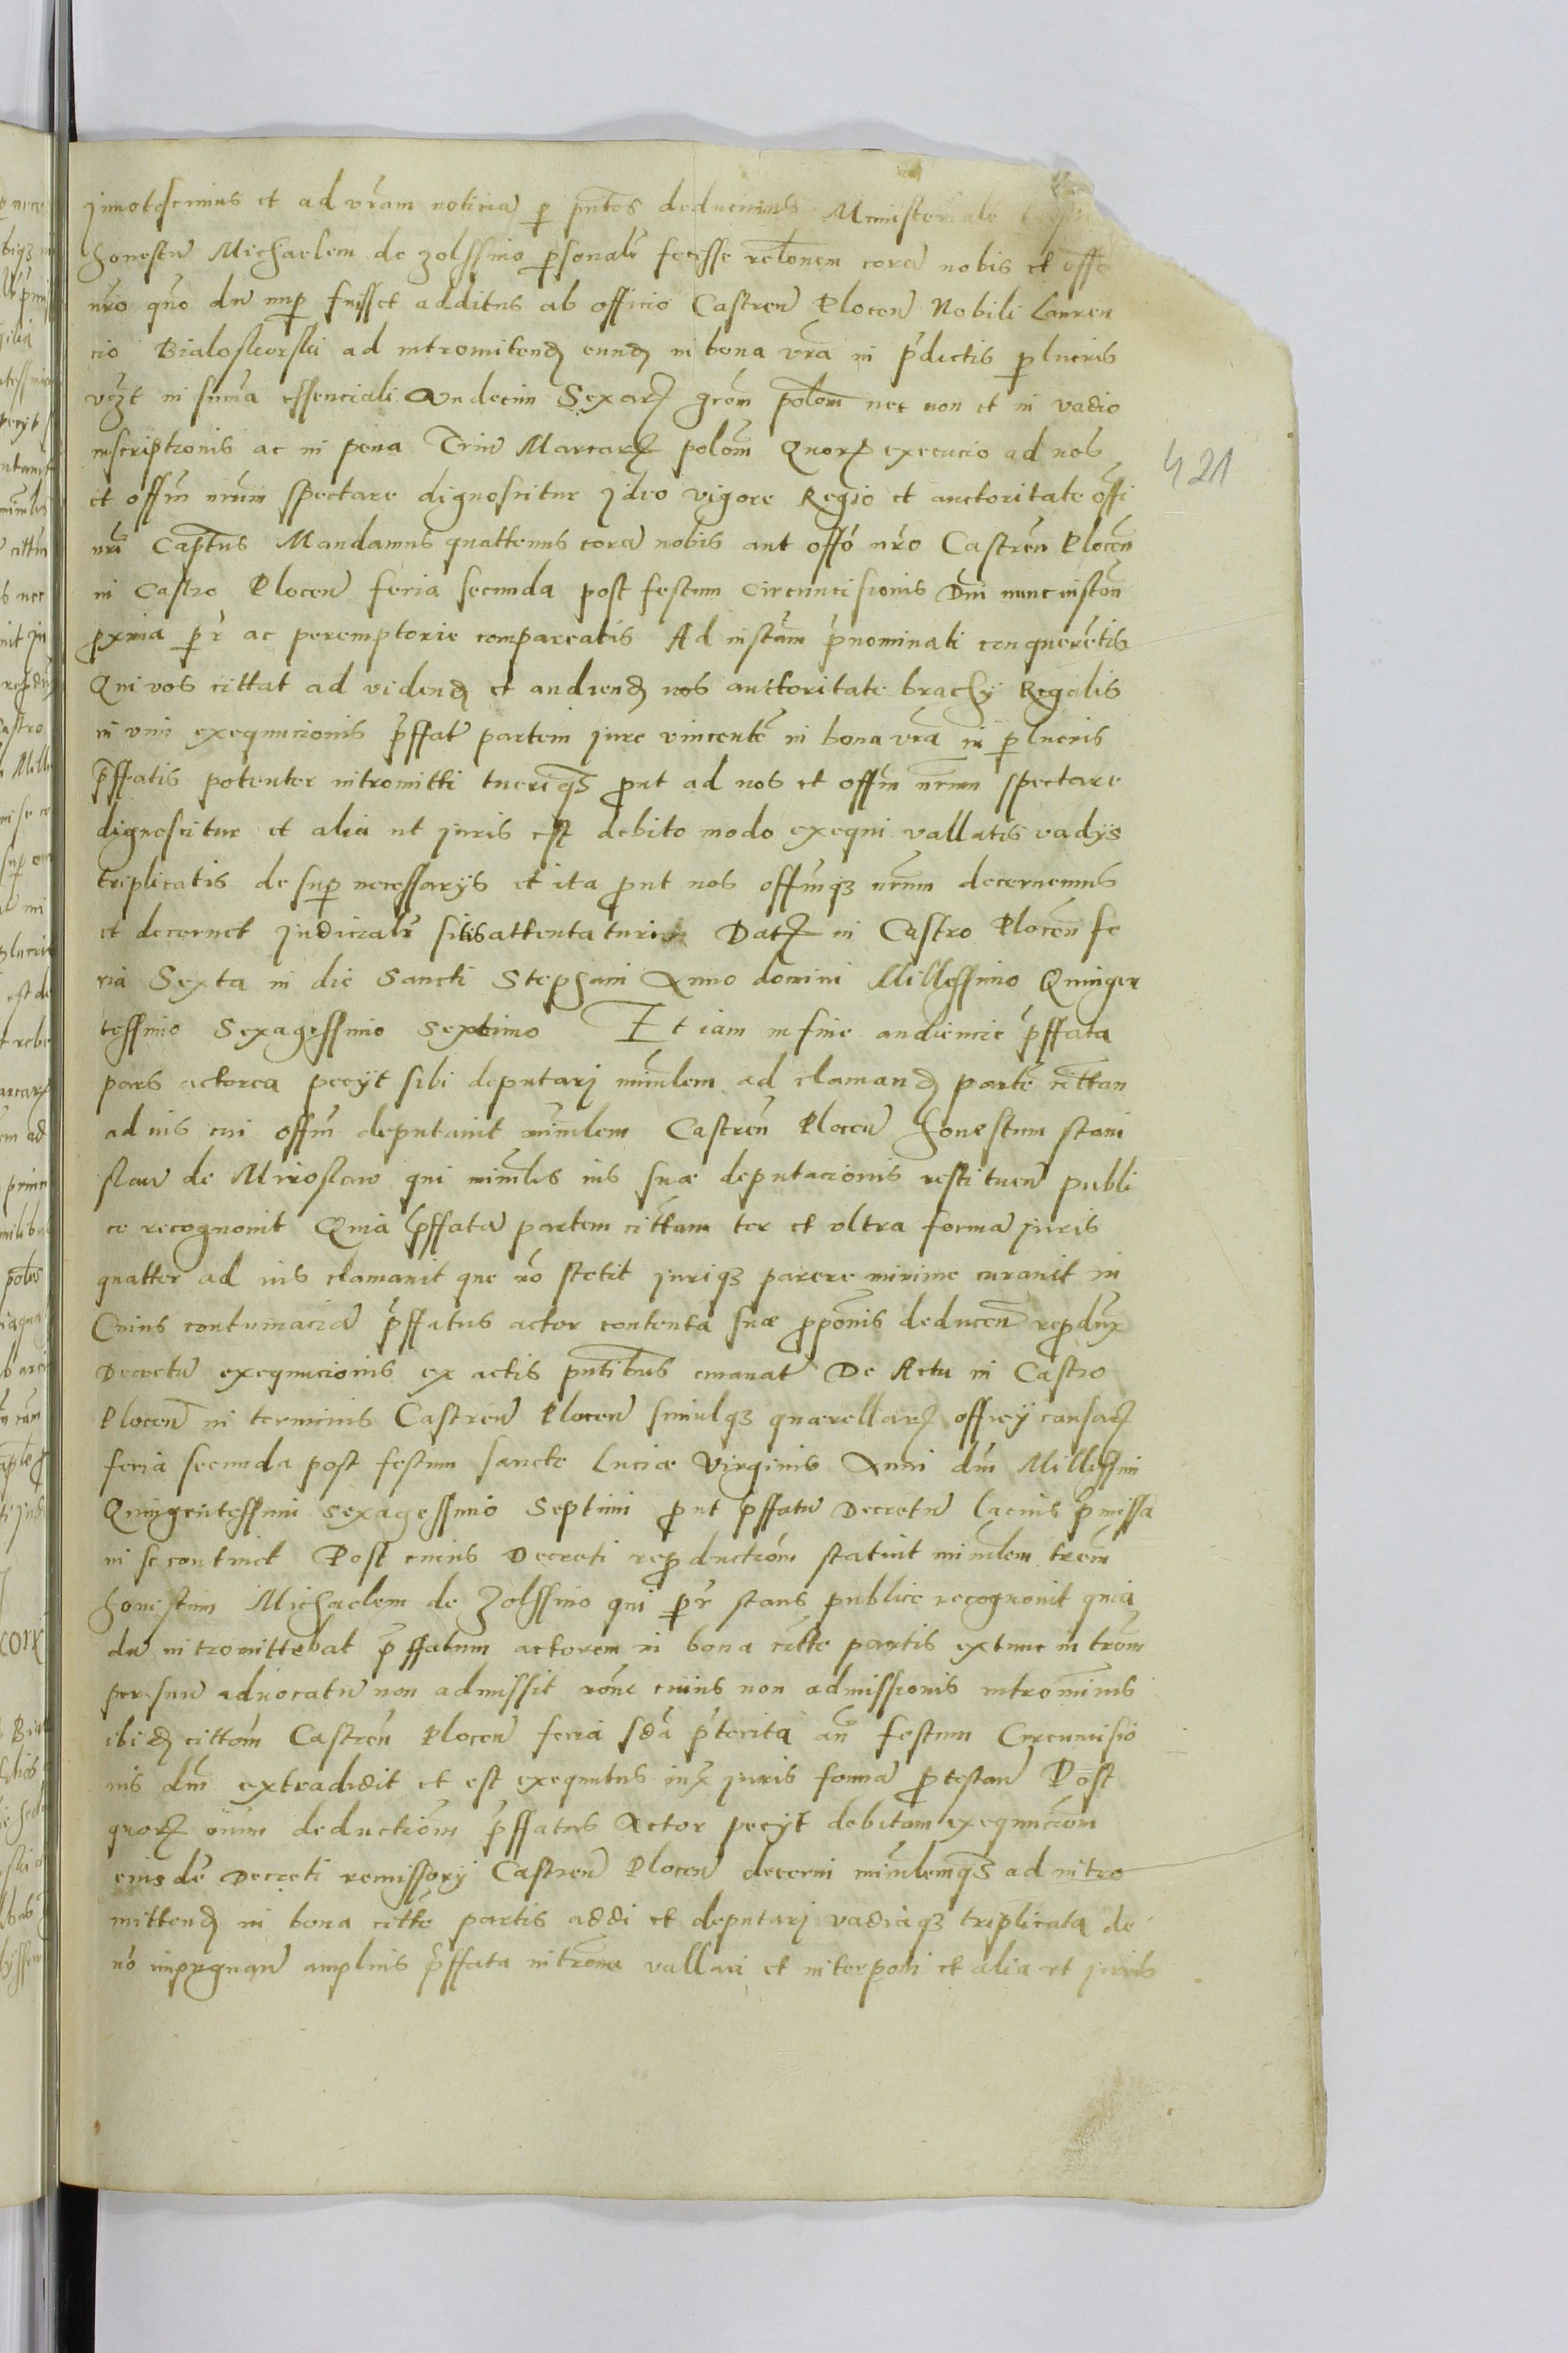 Innotescimus et ad vram noticia p pntes deducimus Ministeriale
honestu Michaelem de Zolssino psonalr fecisse relonem cora nobis et offo
nro quo du nup fuisset additus ab officio Castren Plocen Nobili Lauren
cio Bialoskorski ad intromitend eund in bona vra in pdictis p lucris
vczt in suma essenciali Undecim Sexar grom polom nec non et in vadio
inscriptionis ac in pena Triu Marcar polom Quor execucio ad nos
et offm nrum spectare dignoscitur Ideo vigore Regio et auctoritate offi
nri Captus Mandamus quattenus cora nobis aut offo nro Castren Plocen
in Castro Plocen feria secunda post festum Circumcisionis Dni nunc instan
pxima pr ac peremptorie compareatis Ad instam pnominati conquerentis
Qui vos cittat ad vidend et audiend nos auttoritate brachy Regalis
in vim exequucionis pffat partem iure vincente in bona vra in p lucris
pffatis potenter intromitti tueriqs prout ad nos et offm nrum spectare
dignoscitur et alia ut iuris est debito modo exequi vallatis vadys
triplicatis de sup necessarys et ita prout nos offmqz nrum decernemus
et decernet Judicialr sitis attentaturi Dat in Castro Plocen fe
ria Sexta in die Sancti Stephani Anno domini Millessimo Quingen
tessimo Sexagessimo Septimo Et iam in fine audiencie pffata
pars actorea pecyt sibi deputari minlem ad clamand parte cittan
ad ius cui offm deputauit minlem Castren Plocen honestum stani
slau de Miroslaw qui minlis ius suae deputacionis restituen publi
ce recognouit Quia pffata partem cittam ter et vltra forma iuris
quatter ad ius clamauit que no stetit Juriqz parere minime curauit in
Cuius contumacia pffatus actor contenta suae pponis deducen repdux
Decretu exequucionis ex actis pntibus emanat De Actu in Castro
Plocen in terminis Castren Plocen simulqz quaerellar officy causar
feria secunda post festum sancte Luciae Virginis Anni dni Millessimi
Quingentessimi sexagessimo Septimi prout pffatu Decretu lacius pmissa
in se continet Post cuius Decreti reproductiom statuit minlem trem
honestum Michaelem de Zolssino qui pr stans publice recognouit quia
du intromittebat pffatum actorem in bona citte partis extunc introm
per suu aduocatu non admissit rone cuius non admissionis introminis
ibid cittom Castren Plocen feria sda pterita an festum Circumcisio
nis dni extradidit et est exequutus iux iuris forma protestan Post
quor omm deductiom pffatus Actor pecyt debitam exequuciom
eiusde Decreti remissory Castren Plocen decerni minlemqs ad intro
mittend in bona citte partis addi et deputari vadiaqz triplicata de
no impugnan amplius pffata introme vallari et interponi et alia ut iuris
421